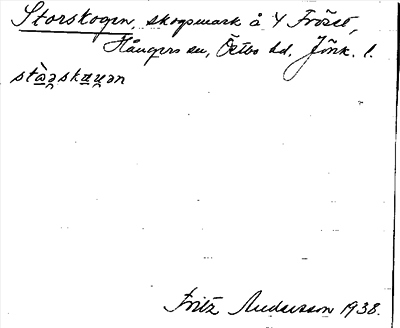 Storskogen, skogsmark å Y Fröset,
Hångers sn, Östbo hd, Jönk. l.
Fritz Andersson 1938.